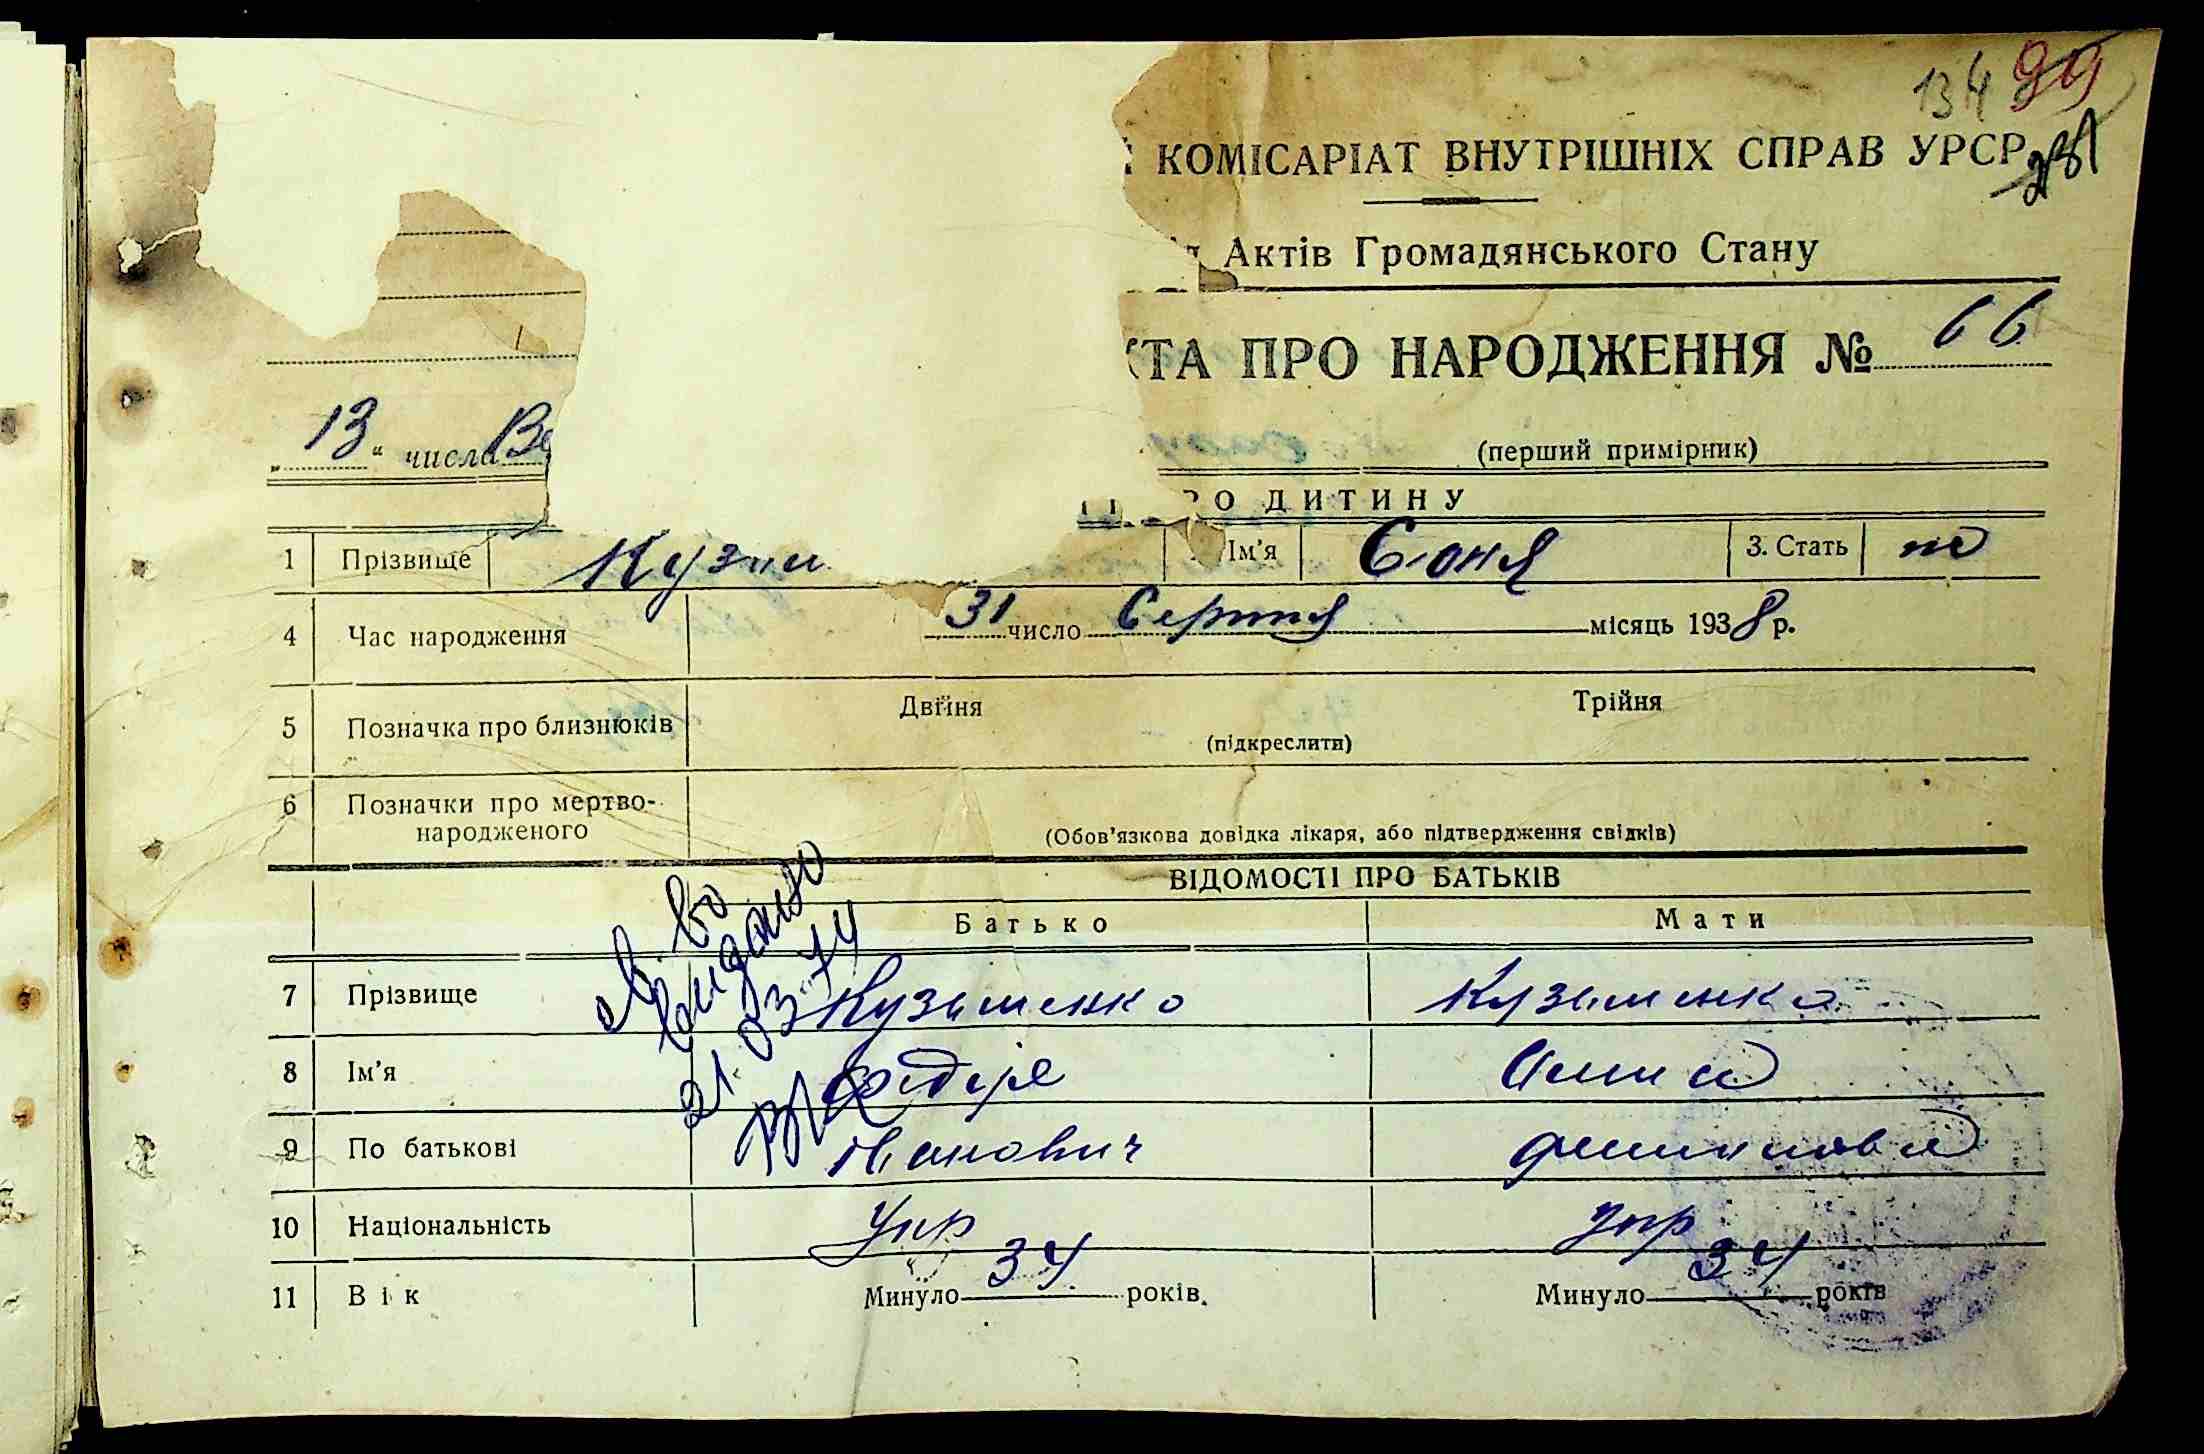 134 99
КОМІСАРІАТ ВНУТРІШНІХ СПРАВ УРСР
Актів Громадянського Стану
КТА ПРО НАРОДЖЕННЯ № 66
„13“ числа Ве
(перший примірник)
РО ДИТИНУ
1 Прізвище Кузьм Ім'я Соня 3. Стать ж
4 Час народження 31 число Серпня місяць 1938 р.
5 Позначка про близнюків Двійня Трійня
(підкреслити)
6 Позначки про мертво-
народженого (Обов'язкова довідка лікаря, або підтвердження свідків)
ВІДОМОСТІ ПРО БАТЬКІВ
Батько Мати
7 Прізвище Кузьменко Кузьменко
8 Ім'я Федір
9 По батькові Іванович
10 Національність Укр Укр
11 Вік Минуло 34 років. Минуло 34 років
св-во
видано
21.03.74